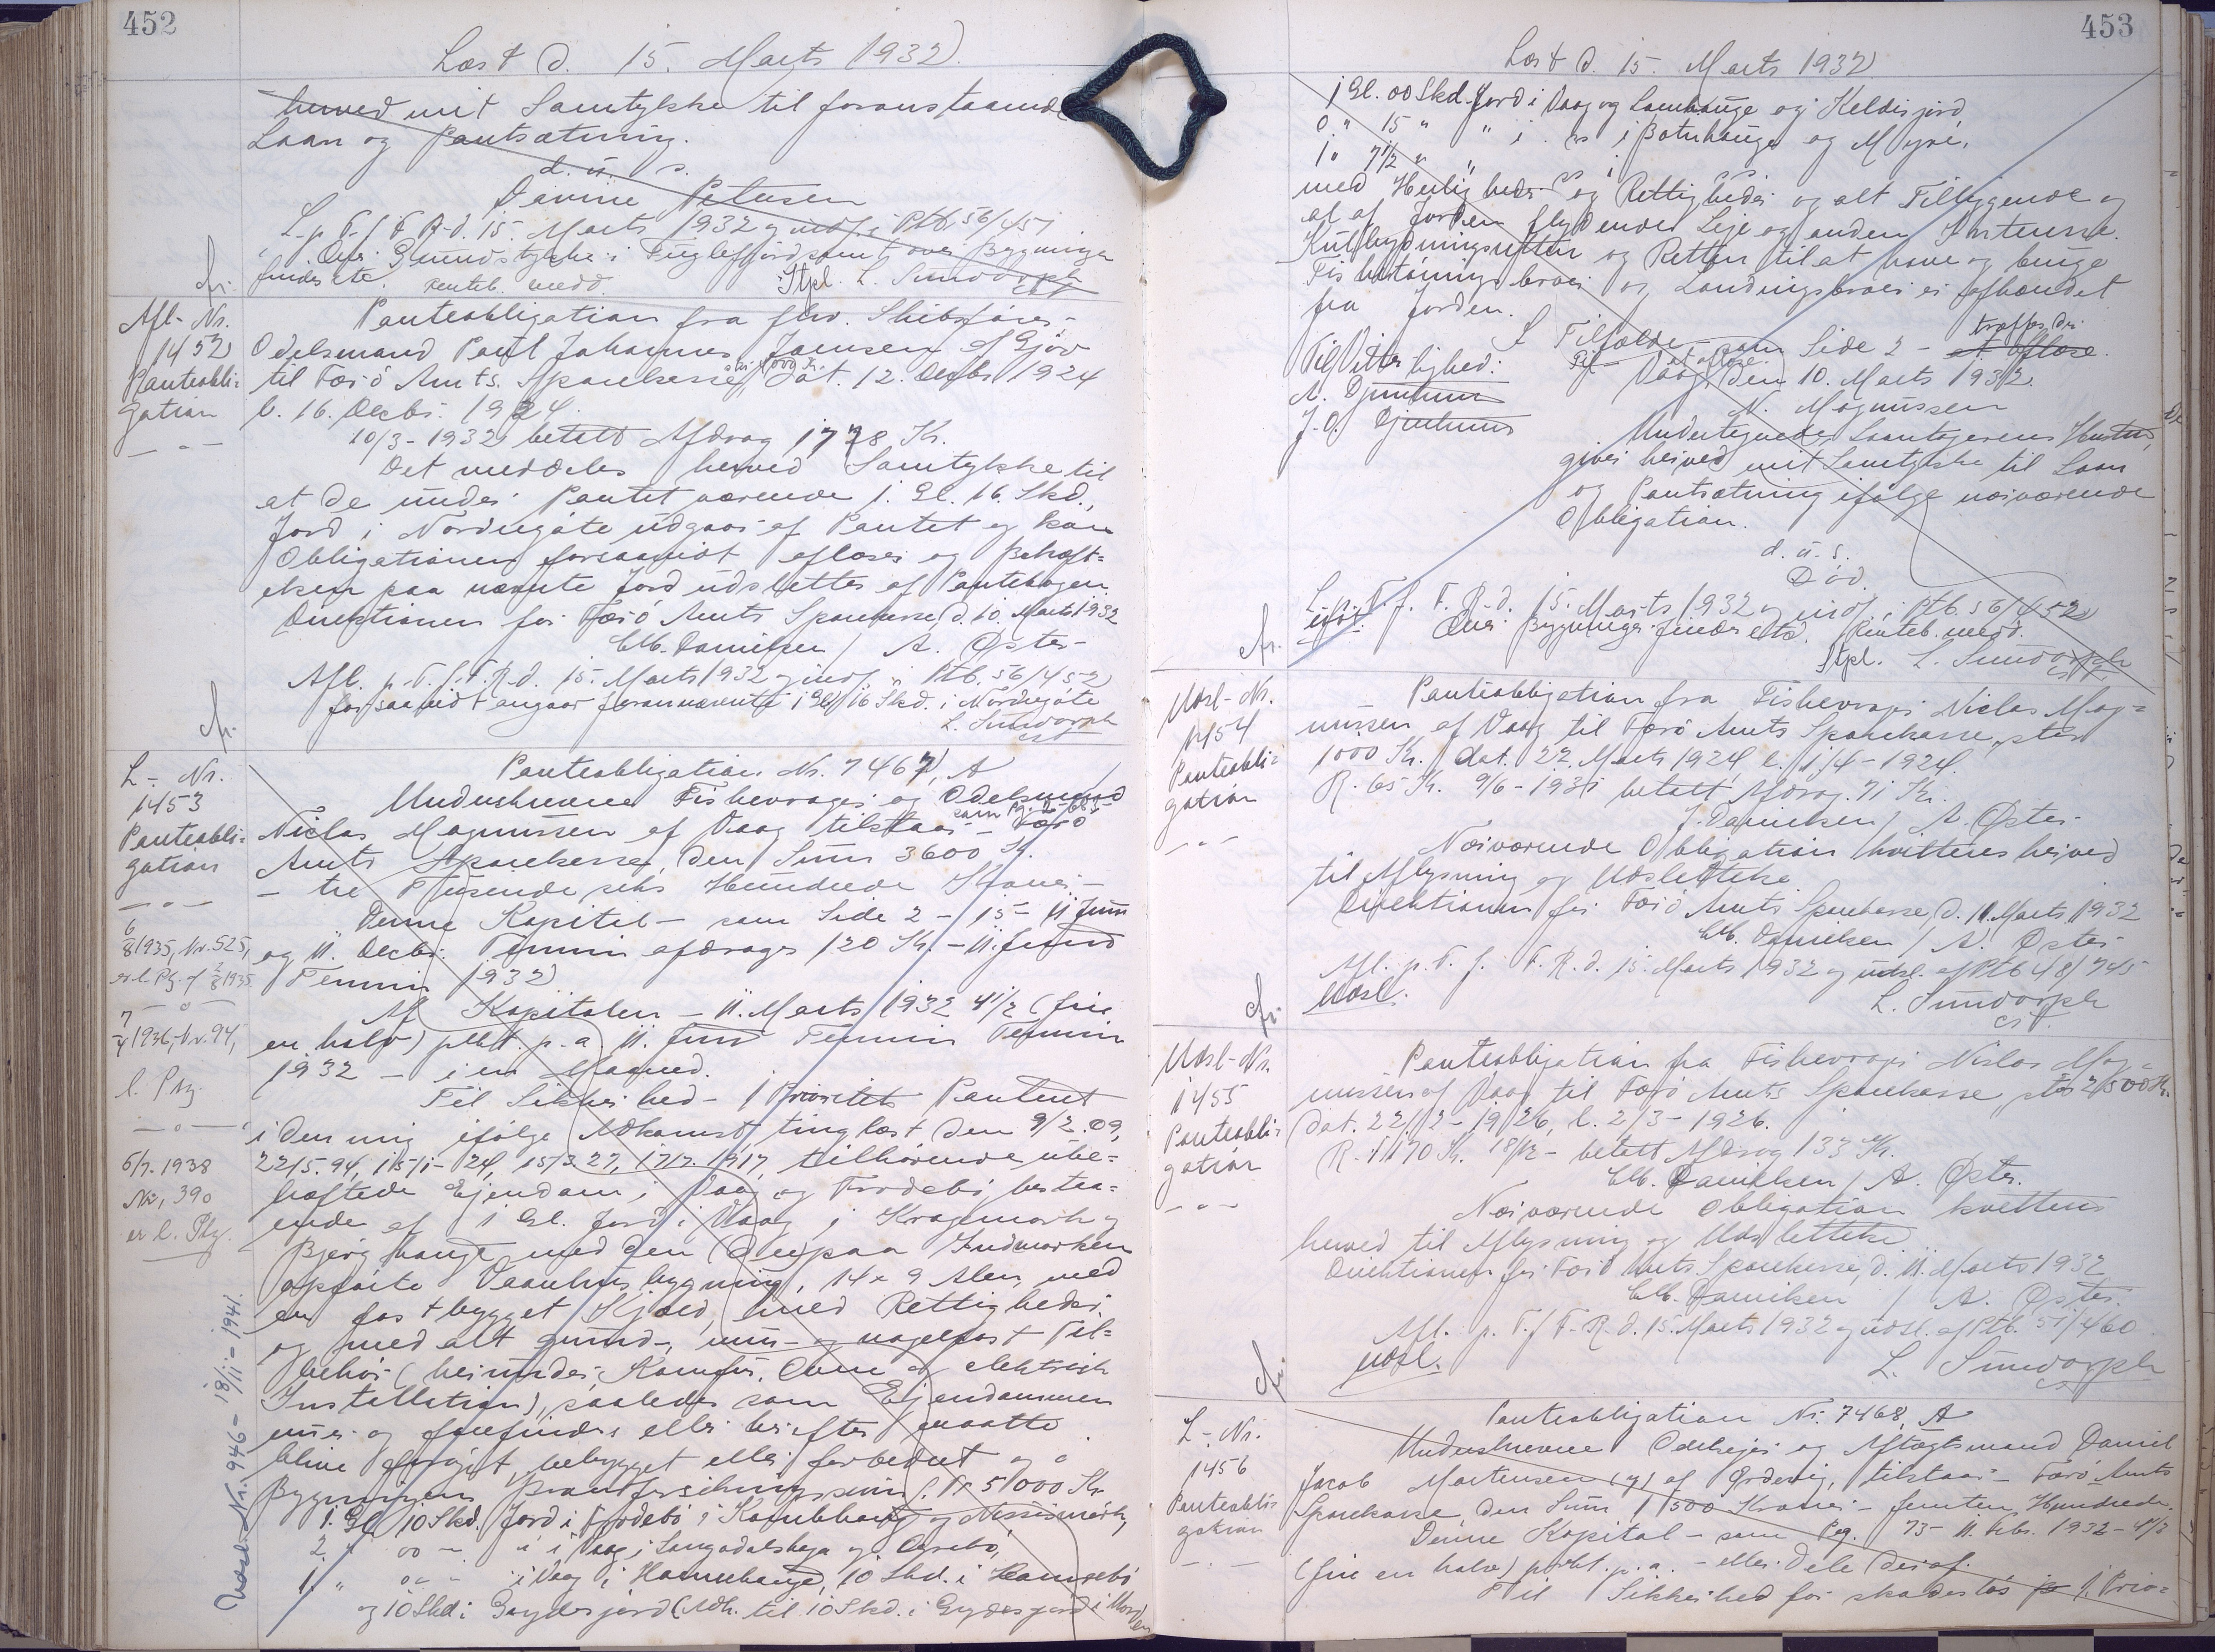 452
Læst d. 15. Marts 1932.
herved mit Samtykke til foranstaaende
Laan og Pantsætning.
d. u. s.
Petersen
L. p. T. f. F. R. d. 15. Marts 1932 og indf. i Ptb. 56/451
Over Grundstykke i Fuglefjord samt over Bygninger
findes ete. renteb. medd. Stpl. L. Sundorph
cst
Afl- Nr.
1452
Panteobli-
gation
Panteobligation fra fhv. Skibsfører,
Odelsmand Poul Johannes Joensen af Gjov
til Færö Amts Sparekasse, dat. 12. Decbr 1924
l. 16. Decbr. 1924.
10/3-1932 betalt Afdrag 1728 Kr.
Det meddeles herved Samtykke til
at de under Pantet værende 1. Gl. 16. Skd.,
Jord i Nordregøte udgaar af Pantet og kan
Obligationen forsaavidt aflæses og Behæft-
elsen paa nævnte Jord udslettes af Pantebogen.
Direktionen for Færö Amts Sparekasse, d. 10. Marts 1932
Chr. Danielsen / A. Øster-
Afl. p. T. f. F. R. d. 15. Marts 1932 og indf. i Ptb. 56/452
forsaavidt angaar forannævnte 1 Gl. 16 Skd. i Nordregøte
L. Sundorph
cst
L- Nr.
1453
Panteobli-
gation
6/8 1935, Nr. 525,
er l. Ptg. af 2/8 1935
7/4 1936, Nr. 94,
l. Ptg.
6/7. 1938
Nr. 390
er l. Ptg.
Udsl. Nr. 946- 18/11-1941.
Panteobligation Nr. 7467, A
Underskrevne Fiskevrager og Odelsmand
Niclas Magnussen af Vaag tilstaar - som Pg. 2-683 Færö
Amts Sparekasse, den Sum 3600 Kr.
- tre Tusende seks Hundrede Kroner -
Denne Kapital - som Side 2 - 15 - 11 Juni
og 11. Decbr. Termin afdrages 120 Kr. - 11. Juni
Termin 1932
Af Kapitalen - 11. Marts 1932 4 1/2 (fire
en halv) pCt. p. a. 11. Juni Termin Termin
1932 - i en Maaned.
Til Sikkerhed - 1 Prioritets Panteret
i den mig ifølge Adkomst, tinglæst den 9/2. 09,
22/5. 94, 15/1- 24, 15/3. 27, 17/7. 1917, tilhørende ube-
hæftede Ejendom i Vaag og Frodebö, bestaa-
ende af 1 Gl. Jord i Vaag i Kragemark og
Bjerghauge med den (de) paa Indmarken
opførte Vaanhusbygning, 14 x 9 Alen, med
en fast bygget Kjæld, med Rettigheder
og med alt grund-, mur- og nagelfast Til-
behör (herunder Komfur, Ovne og elektrisk
Installation), saaledes som Ejendommen
nu er og forefindes eller herefter maatte
blive forøget, bebygget eller forbedret og
Bygningens Brandforsikringssum f. Tr. 5000 Kr
1. Gl. 10 Skd. Jord i Frodebö i Kambhauge og Nissismørk,
2. " 00 " " i Vaag i Langadalshage og Ørebö,
1. " 00 " " i Vaag i Hamrehauge, 10 Skd. i Hamrebö
og 10 Skd i Gerdesjord (Adk. til 10 Skd. i Gerdesjord
453
Læst d. 15. Marts 1932
1 Gl. 00 Skd. Jord i Vaag og Lamhauge og Keldisjord,
0. " 15 " " i . " i Botnhauge og Myre,
1 " 7 1/2 " "
med Herligheder og Rettigheder og alt Tilliggende og
al af Jorden flydende Leje og anden Interesse.
Kulbrydningsretten og Retten til at have og bruge
Fisketørringsbraer og Landingsbraer er afhændet
fra Jorden.
I Tilfælde - som Side 2 - træffes der
Til Vitterlighed: Vaag, den 10. Marts 1932.
N. Djurhuus N. Magnussen
J. O. Djurhuus
Undertegnede, Laantagerens Hustru,
giver herved mit Samtykke til Laan
og Pantsætning ifølge nærværende
Obligation.
d. u. s.
Død.
L. p. T. f. F. R. d. 15. Marts 1932 og indf. i Ptb. 56/452
Over Bygninger findes etc. Renteb. medd.
Stpl. L. Sundorph
cst
Udsl- Nr.
1454
Panteobli-
gation
Panteobligation fra Fiskevrager Niclas Mag-
nussen af Vaag til Færö Amts Sparekasse, stor
1000 Kr. dat. 22. Marts 1924, l. 1/4-1924.
R. 65 Kr. 9/6-1931 betalt Afdrag 71 Kr.
J. Danielsen / A. Øster-
Nærværende Obligation kvitteres herved
til Aflysning og Udslettelse
Direktionen for Færö Amts Sparekasse, d. 11. Marts 1932
Chr. Danielsen / A. Øster-
Afl. p. T. f. F. R. d. 15. Marts 1932 og udsl. af Ptb 48/745
Udsl.
L. Sundorph
cst.
Udsl- Nr.
1455
Panteobli-
gation
Panteobligation fra Fiskevrager Niclas Mag-
nussen af Vaag til Færö Amts Sparekasse stor 2500 Kr.
dat. 22/2-1926, l. 2/3-1926.
R. 1170 Kr. 18/12- betalt Afdrag 133 Kr.
Chr. Danielsen / A. Øster.
Nærværende Obligation kvitteres
herved til Aflysning og Udslettelse
Direktionen for Færö Amts Sparekasse, d. 11. Marts 1932
Chr. Danielsen / A. Øster.
Afl. p. T. f. F. R. d. 15. Marts 1932 og udsl. af Ptb. 51/460
Udsl.
L. Sundorph
cst
L- Nr.
1456
Panteobli-
gation
Panteobligation Nr. 7468, A
Underskrevne Odelsejer og Aftægtsmand Daniel
Jacob Mortensen (y) af Ørdevig, tilstaar - Færö Amts
Sparekasse, den Sum 1500 Kroner - femten Hundrede.
Denne Kapital - som Pag. 73- 11. Febr. 1932 - 4 1/2
(fire en halv) pCt. p. a. - eller Dele deraf.
Til Sikkerhed for skadesløs 1. Prio-